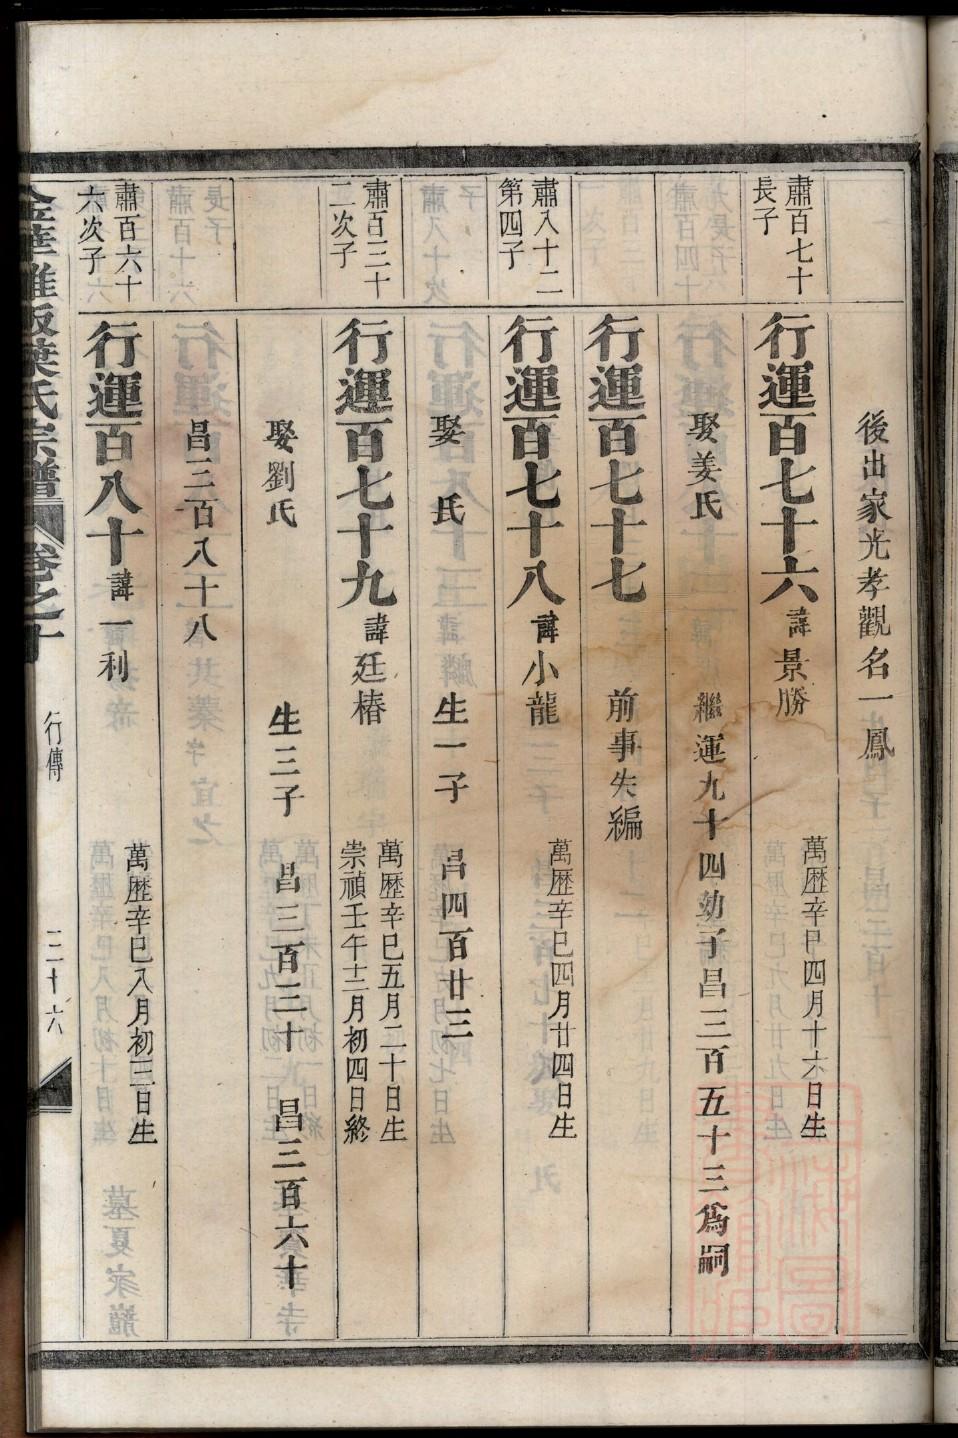 後出家光孝觀名一鳳
肅百七十
長子
行運百七十六 諱景勝
萬歷辛巳四月十六日生
娶姜氏 繼運九十四幼子昌三百五十三爲嗣
行運百七十七 前事失編
肅八十二
第四子
行運百七十八 諱小龍
萬歷辛巳四月廿四日生
娶 氏 生一子 昌四百廿三
肅百三十
二次子
行運百七十九 諱廷椿
萬歷辛巳五月二十日生
崇禎壬午十二月初四日終
娶劉氏 生三子 昌三百三十 昌三百六十
昌三百八十八
肅百六十
六次子
行運百八十 諱一利
萬歷辛巳八月初三日生
葉氏宗譜 卷之十 行傳 三十六